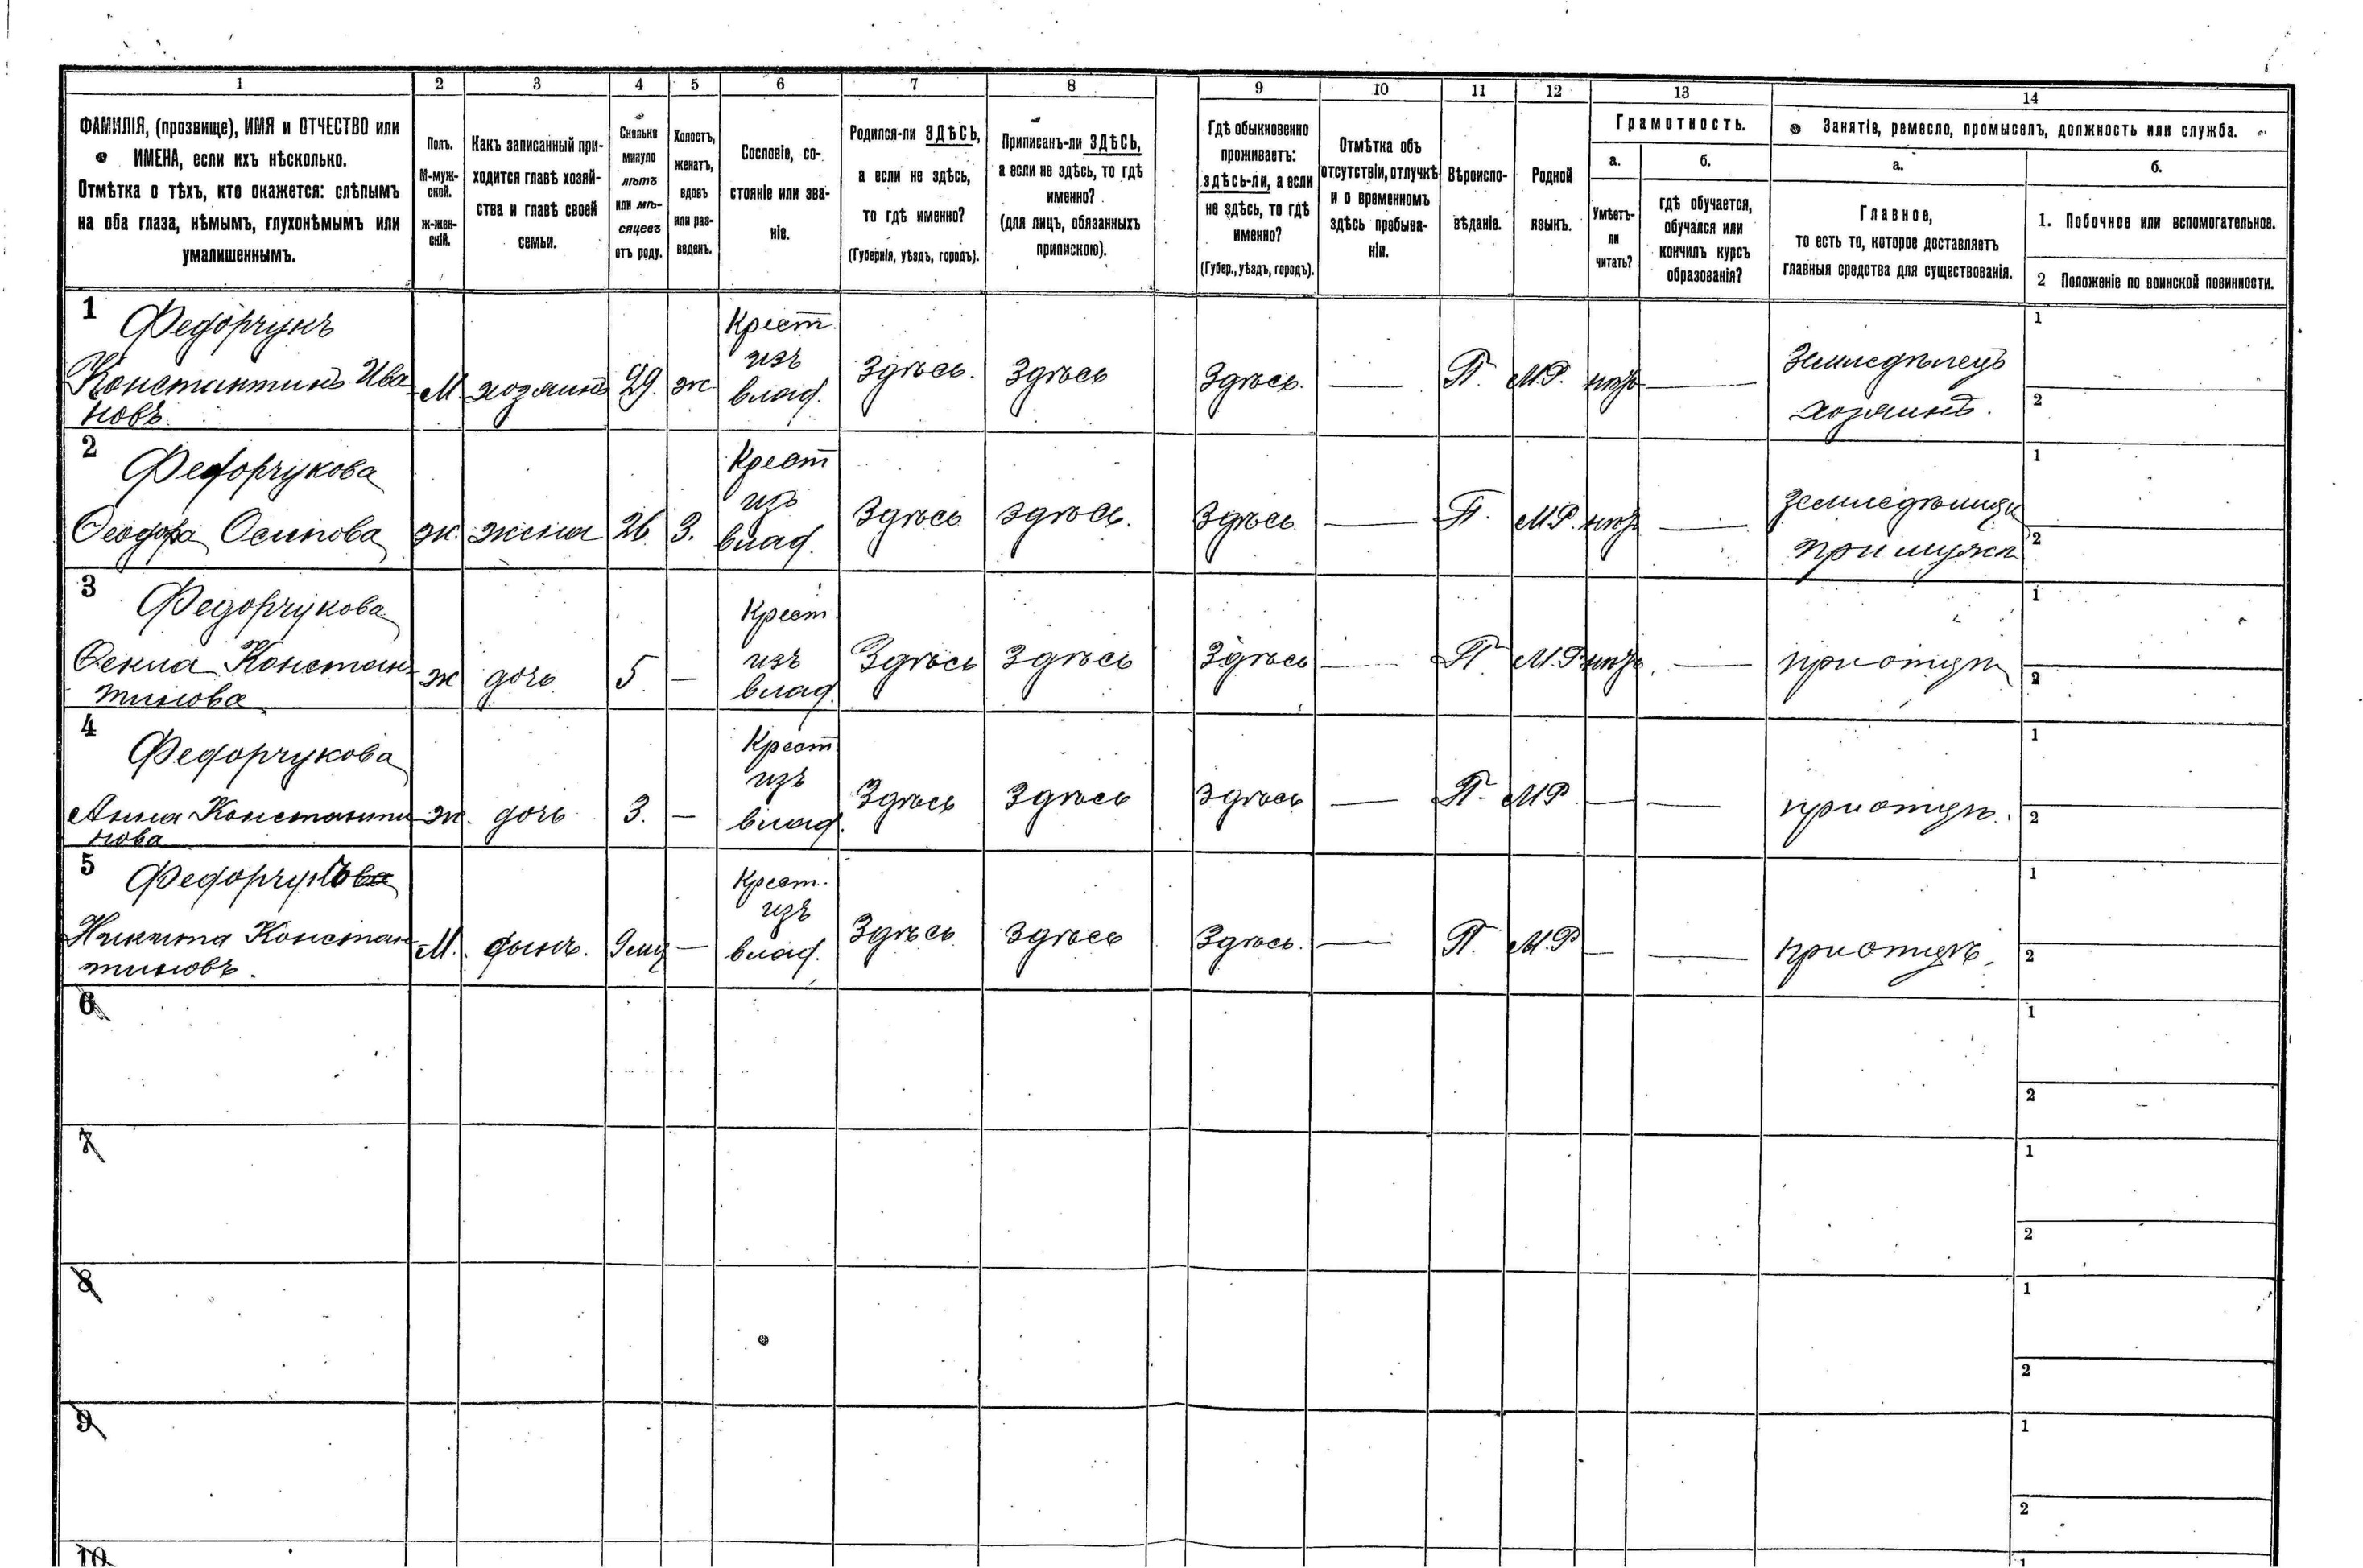 1 2 3 4 5 6 7 8 9 10 11 12 13 14
ФАМИЛІЯ, (прозвище), ИМЯ и ОТЧЕСТВО или
ИМЕНА, если ихъ нѣсколько.
Отмѣтка о тѣхъ, кто окажется: слѣпымъ
на оба глаза, нѣмымъ, глухонѣмымъ или
умалишеннымъ.
Полъ.
М-муж-
ской.
ж-жен-
скій.
Какъ записанный при-
ходится главѣ хозяй-
ства и главѣ своей
семьи.
Сколько
минуло
лѣтъ
или мѣ-
сяцевъ
отъ роду.
Холостъ,
женатъ,
вдовъ
или раз-
веденъ.
Сословіе, со-
стояніе или зва-
ніе.
Родился-ли ЗДѢСЬ,
а если не здѣсь,
то гдѣ именно?
(Губернія, уѣздъ, городъ).
Приписанъ-ли ЗДѢСЬ,
а если не здѣсь, то гдѣ
именно?
(для лицъ, обязанныхъ
припискою).
Гдѣ обыкновенно
проживаетъ:
здѣсь-ли, а если
не здѣсь, то гдѣ
именно?
(Губер., уѣздъ, городъ).
Отмѣтка объ
отсутствіи, отлучкѣ
и о временномъ
здѣсь пребыва-
ніи.
Вѣроиспо-
вѣданіе.
Родной
языкъ.
Грамотность.
а.
Умѣетъ-
ли
читать?
б.
гдѣ обучается,
обучался или
кончилъ курсъ
образованія?
Занятіе, ремесло, промыселъ, должность или служба.
а.
Главное,
то есть то, которое доставляетъ
главныя средства для существованія.
б.
1. Побочное или вспомогательное.
2 Положеніе по воинской повинности.
1
Федорчукъ
Константинъ Ива
новъ
М.
хозяинъ
29.
ж
Крест.
изъ
влад.
Здѣсь.
Здѣсь
Здѣсь.
—
П.
М.Р.
нѣтъ
—
Земледѣлецъ
хозяинъ.
1
2
2
Федорчукова
Ѳеодора Осипова
ж.
жена
26
З.
Крест
изъ
влад.
Здѣсь
Здѣсь.
Здѣсь
—
П.
М.Р.
нѣтъ
—
при мужѣ
1
2
3
Федорчукова
Ѳекла Констан-
тинова
ж
дочь
5
—
Крест
изъ
влад.
Здѣсь
Здѣсь
Здѣсь
—
П
М.Р.
нѣтъ
—
при отцѣ
1
2
4
Федорчукова
Анна Константи
нова
ж.
дочь
3.
—
Крест
изъ
влад.
Здѣсь
Здѣсь
Здѣсь
—
П.
МР
—
—
при отцѣ.
1
2
5
Федорчукъ
Никита Констан-
тиновъ.
М.
сынъ.
9 мц
—
Крест.
изъ
влад.
Здѣсь
Здѣсь
Здѣсь.
—
П.
М.Р
—
—
при отцѣ.
1
2
6
1
2
7
1
2
8
1
2
9
1
2
10
1